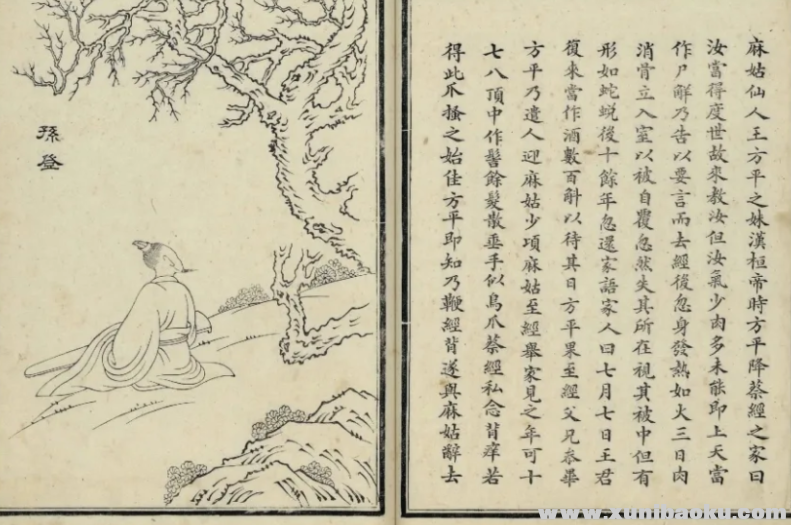 麻姑仙人王方平之妹漢桓帝時方平降蔡經之家曰
汝當得度世故來教汝但汝氣少肉多未能即上天當
作尸解乃告以要言而去經後忽身發熱如火三日肉
消骨立入室以被自覆忽然失其所在視其被中但有
形如蛇蛻後十餘年忽還家語家人曰七月七日王君
復來當作酒數百斛以待其日方平果至經父兄叅畢
方平乃遣人迎麻姑少頃麻姑至經舉家見之年可十
七八頂中作髻餘髮散垂手似鳥爪蔡經私念背癢若
得此爪搔之始佳方平即知乃鞭經背遂與麻姑辭去
孫登
www.xunibaoku.com